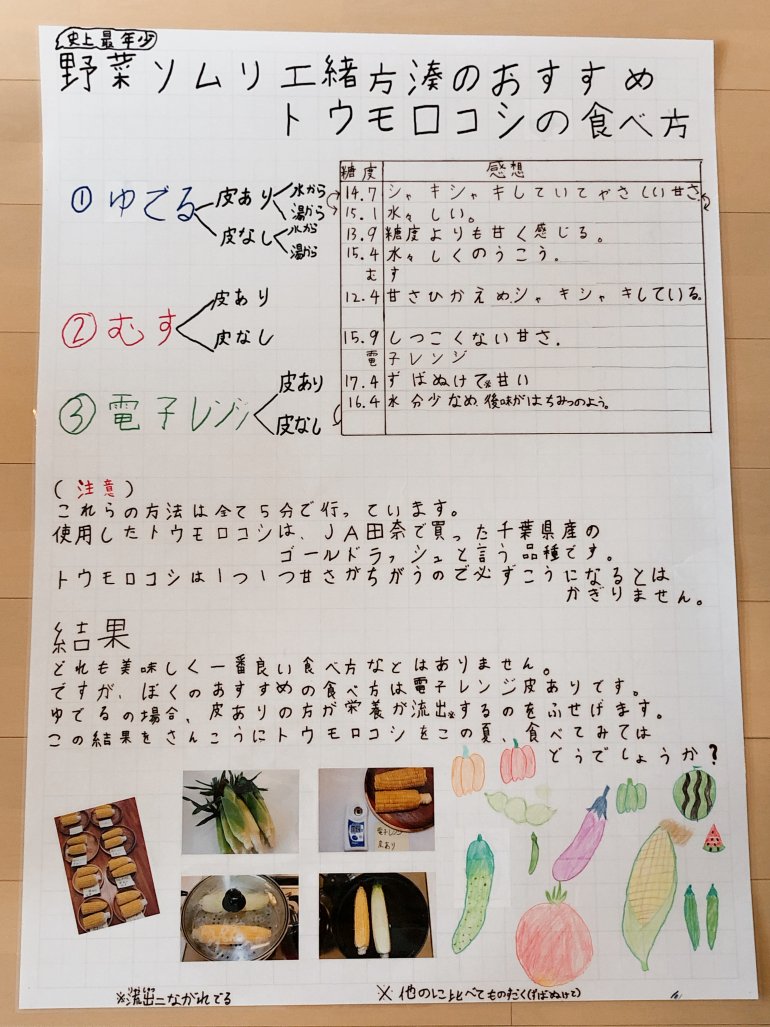 史上最年少
野菜ソムリエ緒方湊のおすすめ
トウモロコシの食べ方
①ゆでる
皮あり
水から
湯から
皮なし
水から
湯から
②むす
皮あり
皮なし
③電子レンジ
皮あり
皮なし
糖度 感想
14.7 シャキシャキしていてやさしい甘さ
15.1 水々しい。
13.9 糖度よりも甘く感じる。
15.4 水々しくのうこう。
むす
12.4 甘さひかえめシャキシャキしている。
15.9 しつこくない甘さ.
電子レンジ
17.4 ずばぬけて※甘い
16.4 水分少なめ 後味がはちみつのよう。
(注意)
これらの方法は全て5分で行っています。
使用したトウモロコシは、JA田奈で買った千葉県産の
ゴールドラッシュと言う品種です。
トウモロコシは1つ1つ甘さがちがうので必ずこうになるとは
かぎりません。
結果
どれも美味しく一番良い食べ方などはありません。
ですが、ぼくのおすすめの食べ方は電子レンジ皮ありです。
ゆでるの場合、皮ありの方が栄養が流出※するのをふせげます。
この結果をさんこうにトウモロコシをこの夏、食べてみては
どうでしょうか?
電子レンジ
皮あり
※流出=ながれでる
※他のに比べてものすごく(ずばぬけて)